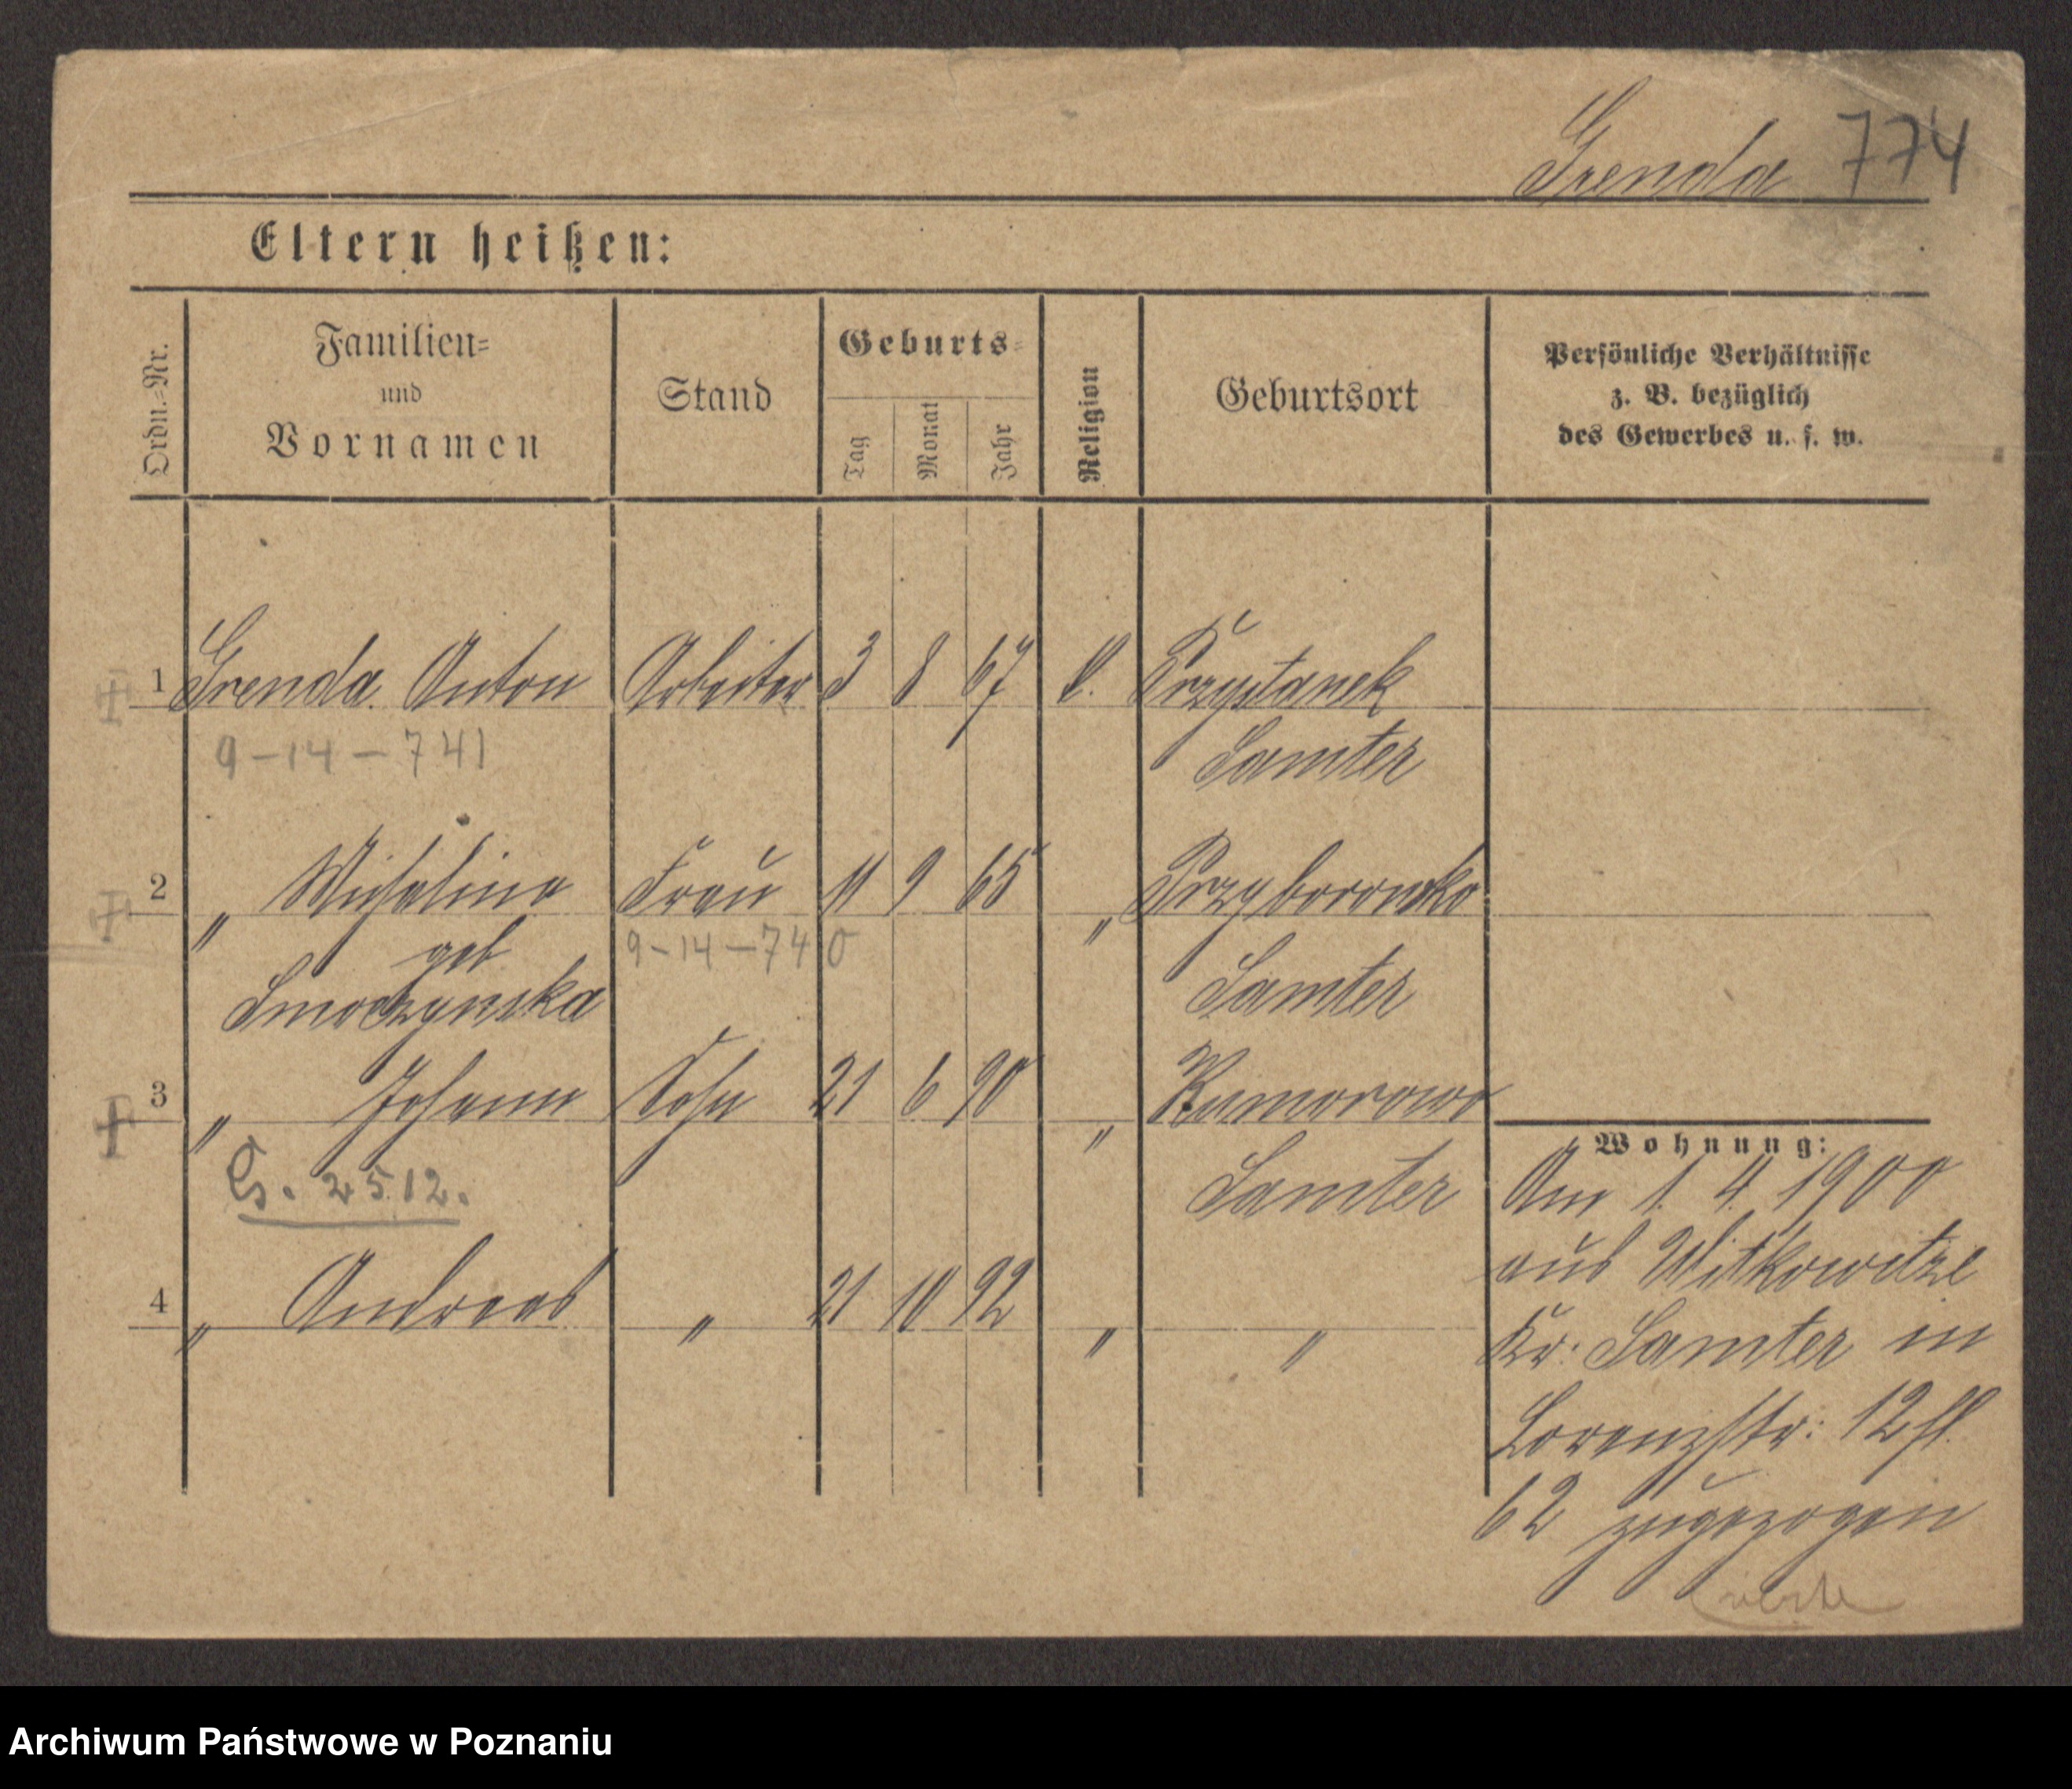 Grenda 774
Eltern heißen:
Ordn.-Nr.
Familien-
und
Vornamen
Stand
Geburts-
Tag
Monat
Jahr
Religion
Geburtsort
Persönliche Verhältnisse
z. B. bezüglich
des Gewerbes u. s. w.
1 Grenda Anton Arbeiter 3 8 67 k. Przystanek
9-14-741 Samter
2 " Michalina Frau 11 9 65 " Przyborowko
geb 9-14-740
Smoczynska Samter
3 " Johann Sohn 21 6 90 " Kumorowo
G. 2512. Samter
4 " Andreas " 21 10 92 " "
Wohnung:
Am 1. 4. 1900
aus Witkowitze
Kr: Samter in
Lorenzstr: 12
62 zugezogen
Archiwum Państwowe w Poznaniu